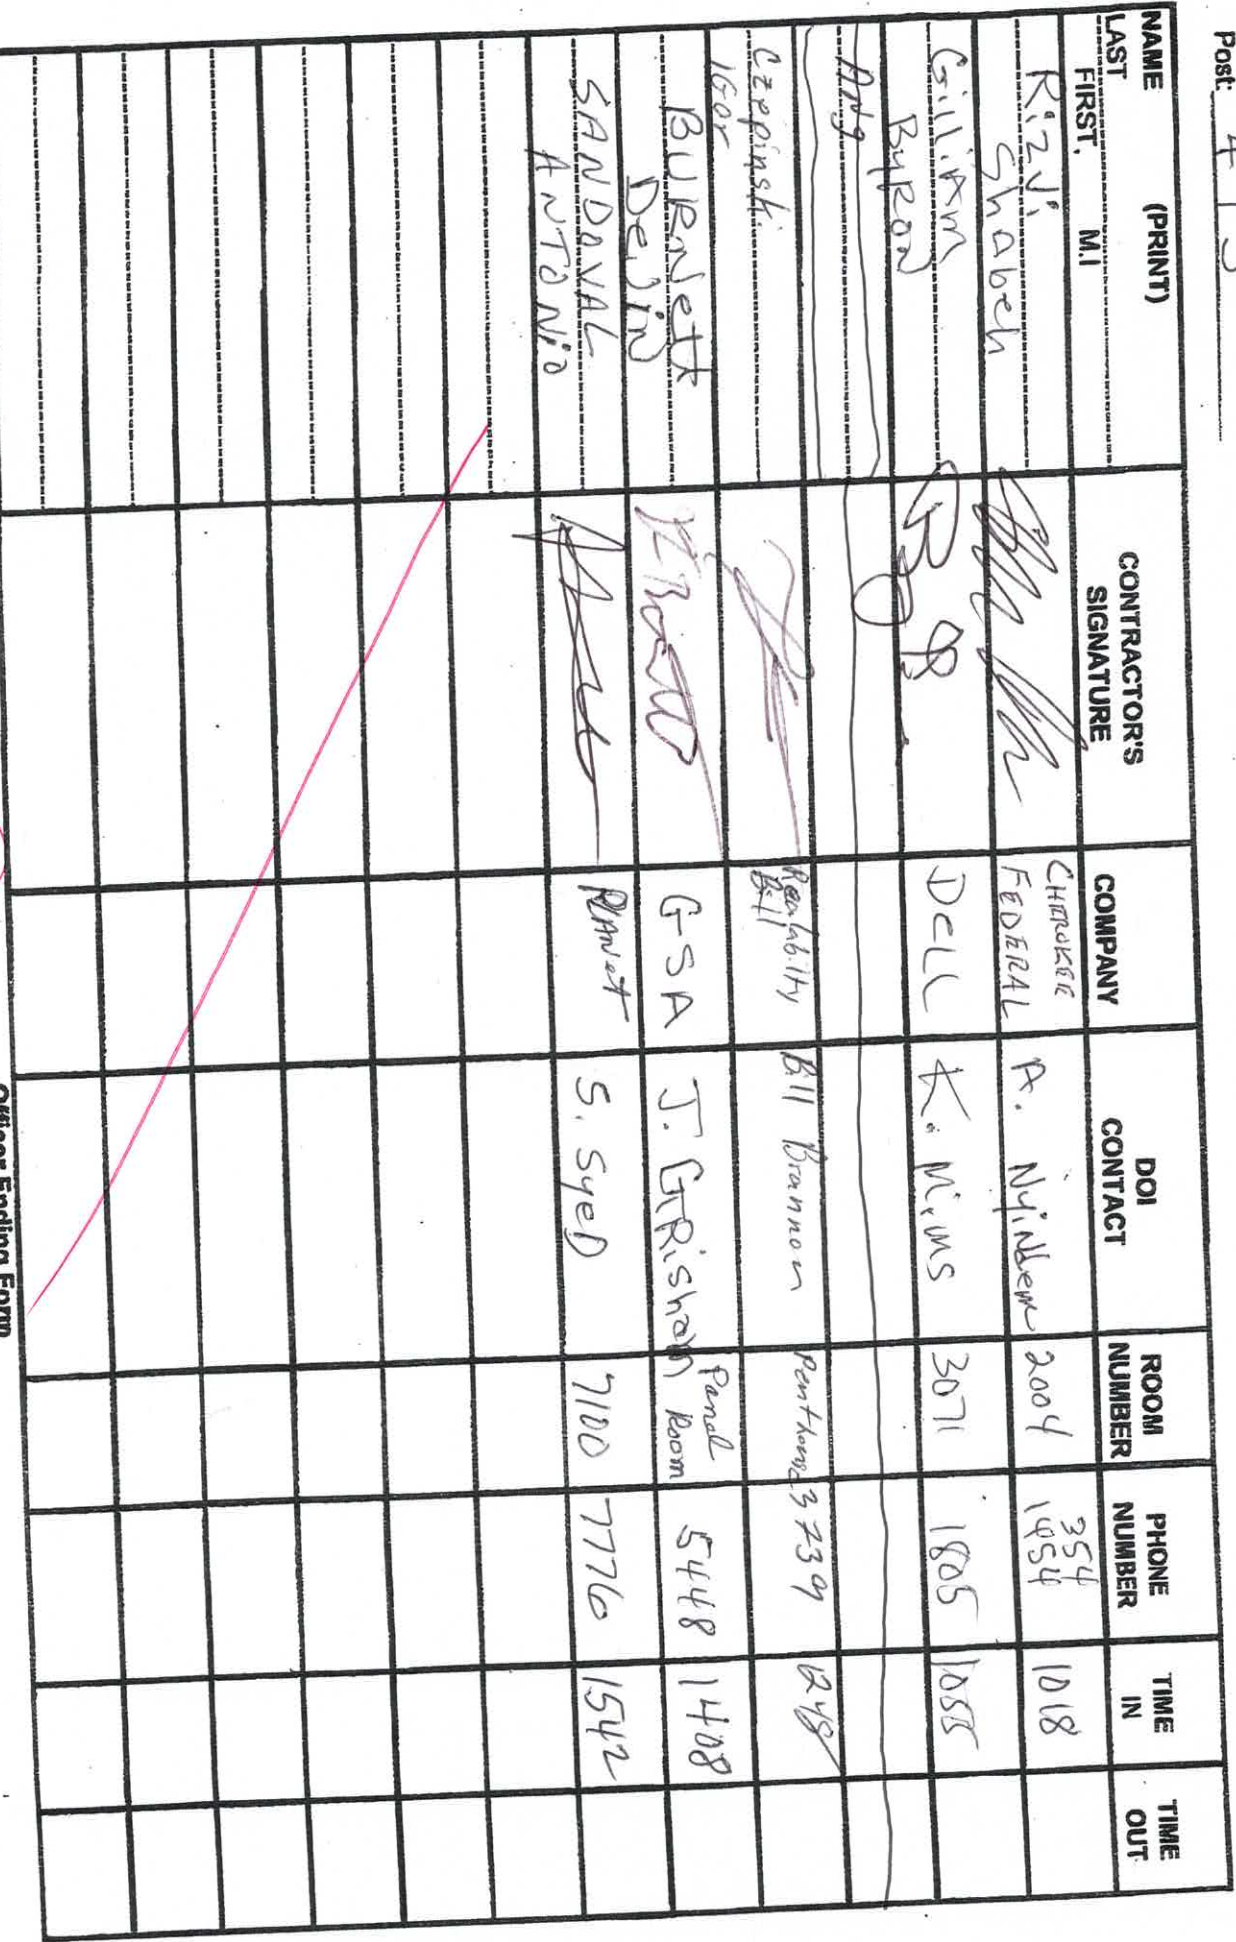 Post: 4
NAME (PRINT)
LAST
FIRST, M.I
CONTRACTOR'S
SIGNATURE
COMPANY
DOI
CONTACT
ROOM
NUMBER
PHONE
NUMBER
TIME
IN
TIME
OUT
Rizvi
Shabeh
CHEROKEE
FEDERAL
A.
2004
354
1454
1018
GilliAM
ByRON
DELL
K. Mims
3071
1805
1055
Czeppinski
IGor
Bill
Bill Brannon
Penthouse
3739
1248
BURNett
Devin
GSA
J. GRisham
Panel
Room
5448
1408
SANDOVAL
ANTONio
PLANet
S. SyeD
7100
7776
1542
Officer Ending Form